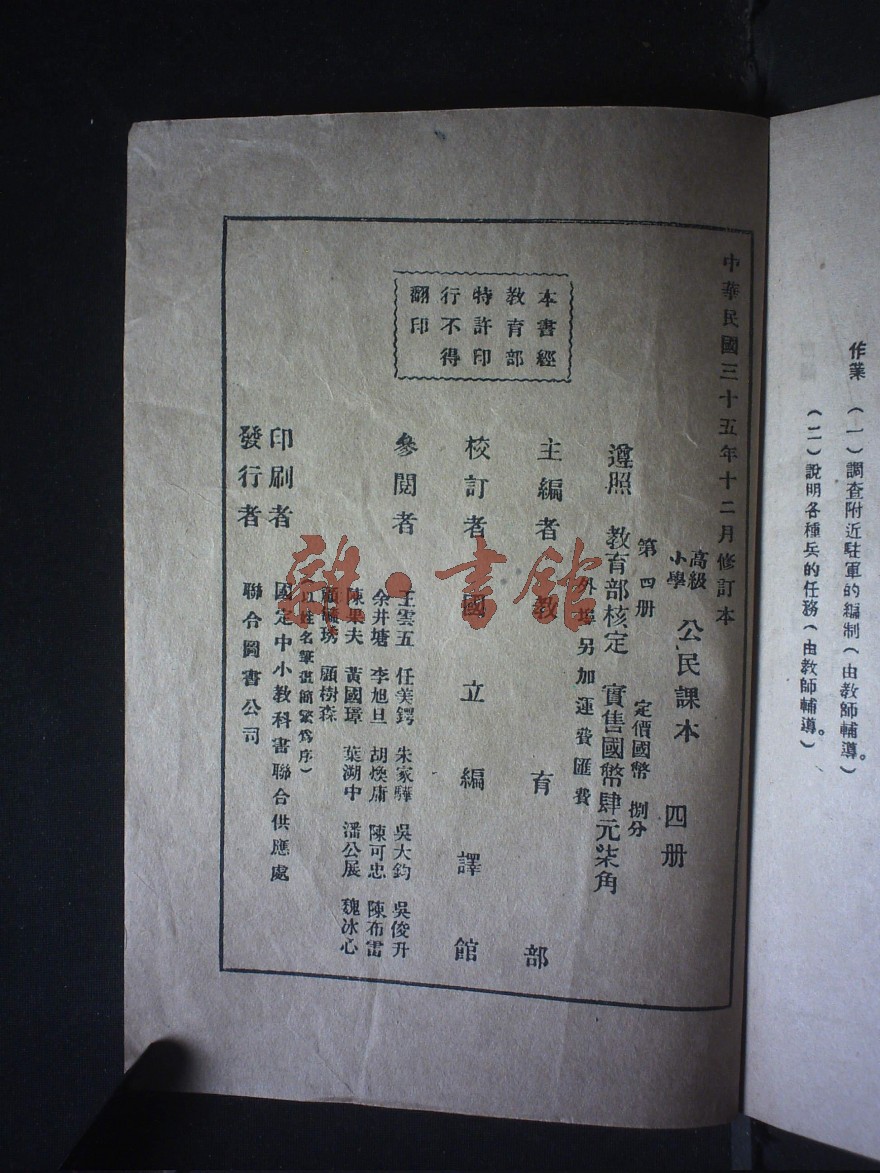 作業　（一）調查附近駐軍的編制（由教師輔導。）
（二）說明各種兵的任務（由教師輔導。）
中華民國三十五年十二月修訂本
高級小學　公民課本　四册
第四册　定價國幣　捌分
遵照　教育部核定　實售國幣肆元柒角
外埠另加運費匯費
主編者　教育部
校訂者　國立編譯館
參閱者　王雲五　任美鍔　朱家驊　吳大鈞　吳俊升
余井塘　李旭旦　胡煥庸　陳可忠　陳布雷
陳果夫　黃國璋　葉溯中　潘公展　魏冰心
顧毓琇　顧樹森
（以姓名筆畫簡繁爲序）
印刷者　國定中小教科書聯合供應處
發行者　聯合圖書公司
本書經
教育部
特許印
行不得
翻印
雜·書館